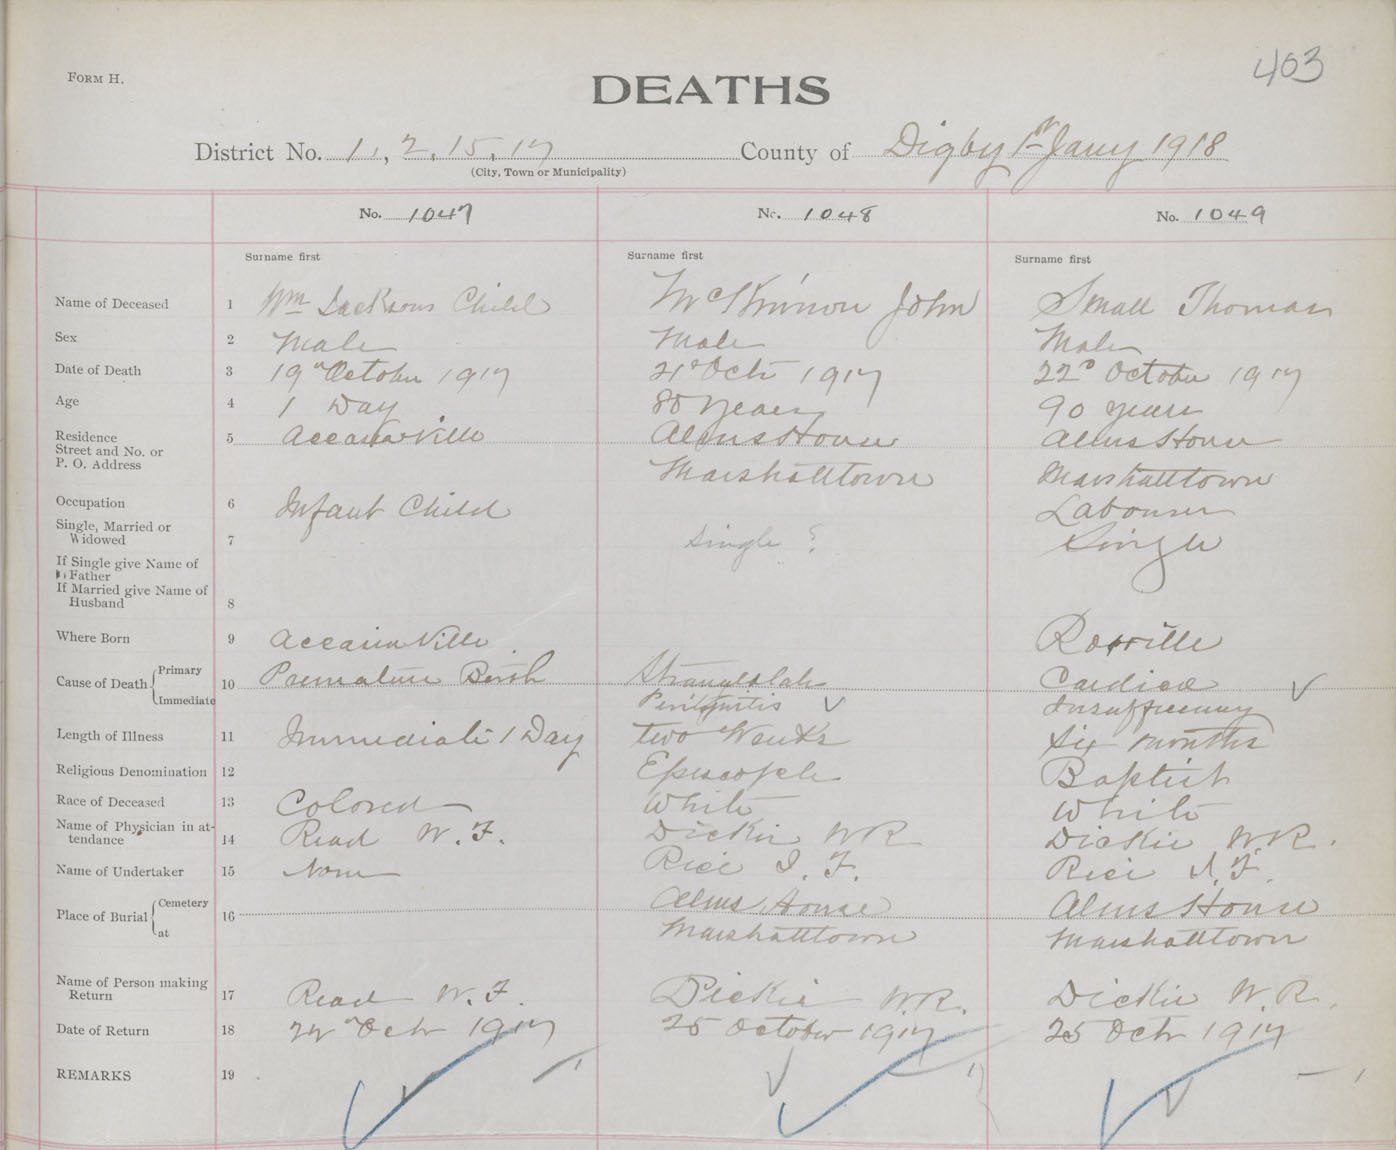 403
FORM H.
DEATHS
District No. 1, 2, 15, 17 County of Digby 1st Jany 1918
(City, Town or Municipality)
No. 1047 No. 1048 No. 1049
Surname first Surname first Surname first
Name of Deceased 1 Wm Jacksons Child McKinnon John Small Thomas
Sex 2 Male Male Male
Date of Death 3 19th October 1917 21st Oct 1917 22d October 1917
Age 4 1 Day 80 years 90 years
Residence 5 Accaciaville Alms House Alms House
Street and No. or
P. O. Address Marshalltown Marshalltown
Occupation 6 Infant Child Labourer
Single, Married or
Widowed 7 Single ? Single
If Single give Name of
Father
If Married give Name of
Husband 8
Where Born 9 Accaciaville Rossville
Cause of Death Primary 10 Premature Birth Strangulated Cardiac
Immediate Peritonitis Insufficiency
Length of Illness 11 Immediate 1 Day two Weeks six months
Religious Denomination 12 Baptist
Race of Deceased 13 Colored White White
Name of Physician in at-
tendance 14 Read W. F. Dickie W R Dickie W. R.
Name of Undertaker 15 None Rice I. F. Rice I. F.
Place of Burial Cemetery 16 Alms House Alms House
at Marshalltown Marshalltown
Name of Person making
Return 17 Read W. F. Dickie W. R. Dickie W. R.
Date of Return 18 Oct 1917 25 October 1917 25 Oct 1917
REMARKS 19